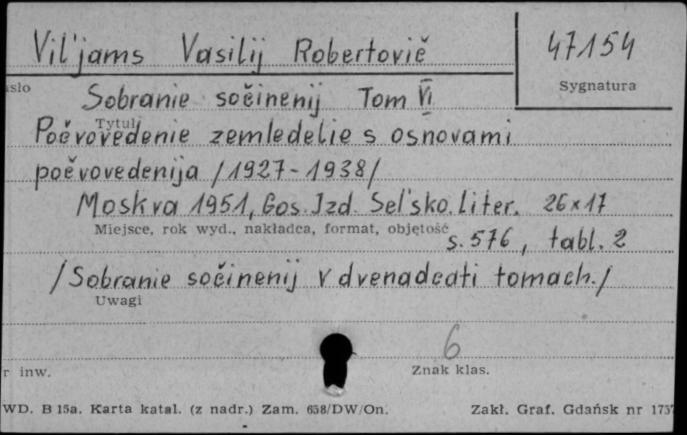 Vil'jams Vasilij Robertovič 47154
Sygnatura
Sobranie sočinenij Tom VI
Tytuł
Počvovedenie zemledelie s osnovami
počvovedenija /1927-1938/
Moskva 1951, Gos. Izd. Sel'sko. liter. 26x17
Miejsce, rok wyd., nakładca, format, objętość
s. 576, tabl. 2
/Sobranie sočinenij v dvenadcati tomach./
Uwagi
6
r inw. Znak klas.
WD. B 15a. Karta katal. (z nadr.) Zam. 658/DW/On. Zakł. Graf. Gdańsk nr